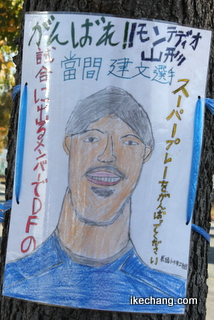 がんばれ!!モンテディオ
山形!!
試合に出るメンバーでDFの
當間 建文選手
スーパープレーをがんばってください
ikechang.com